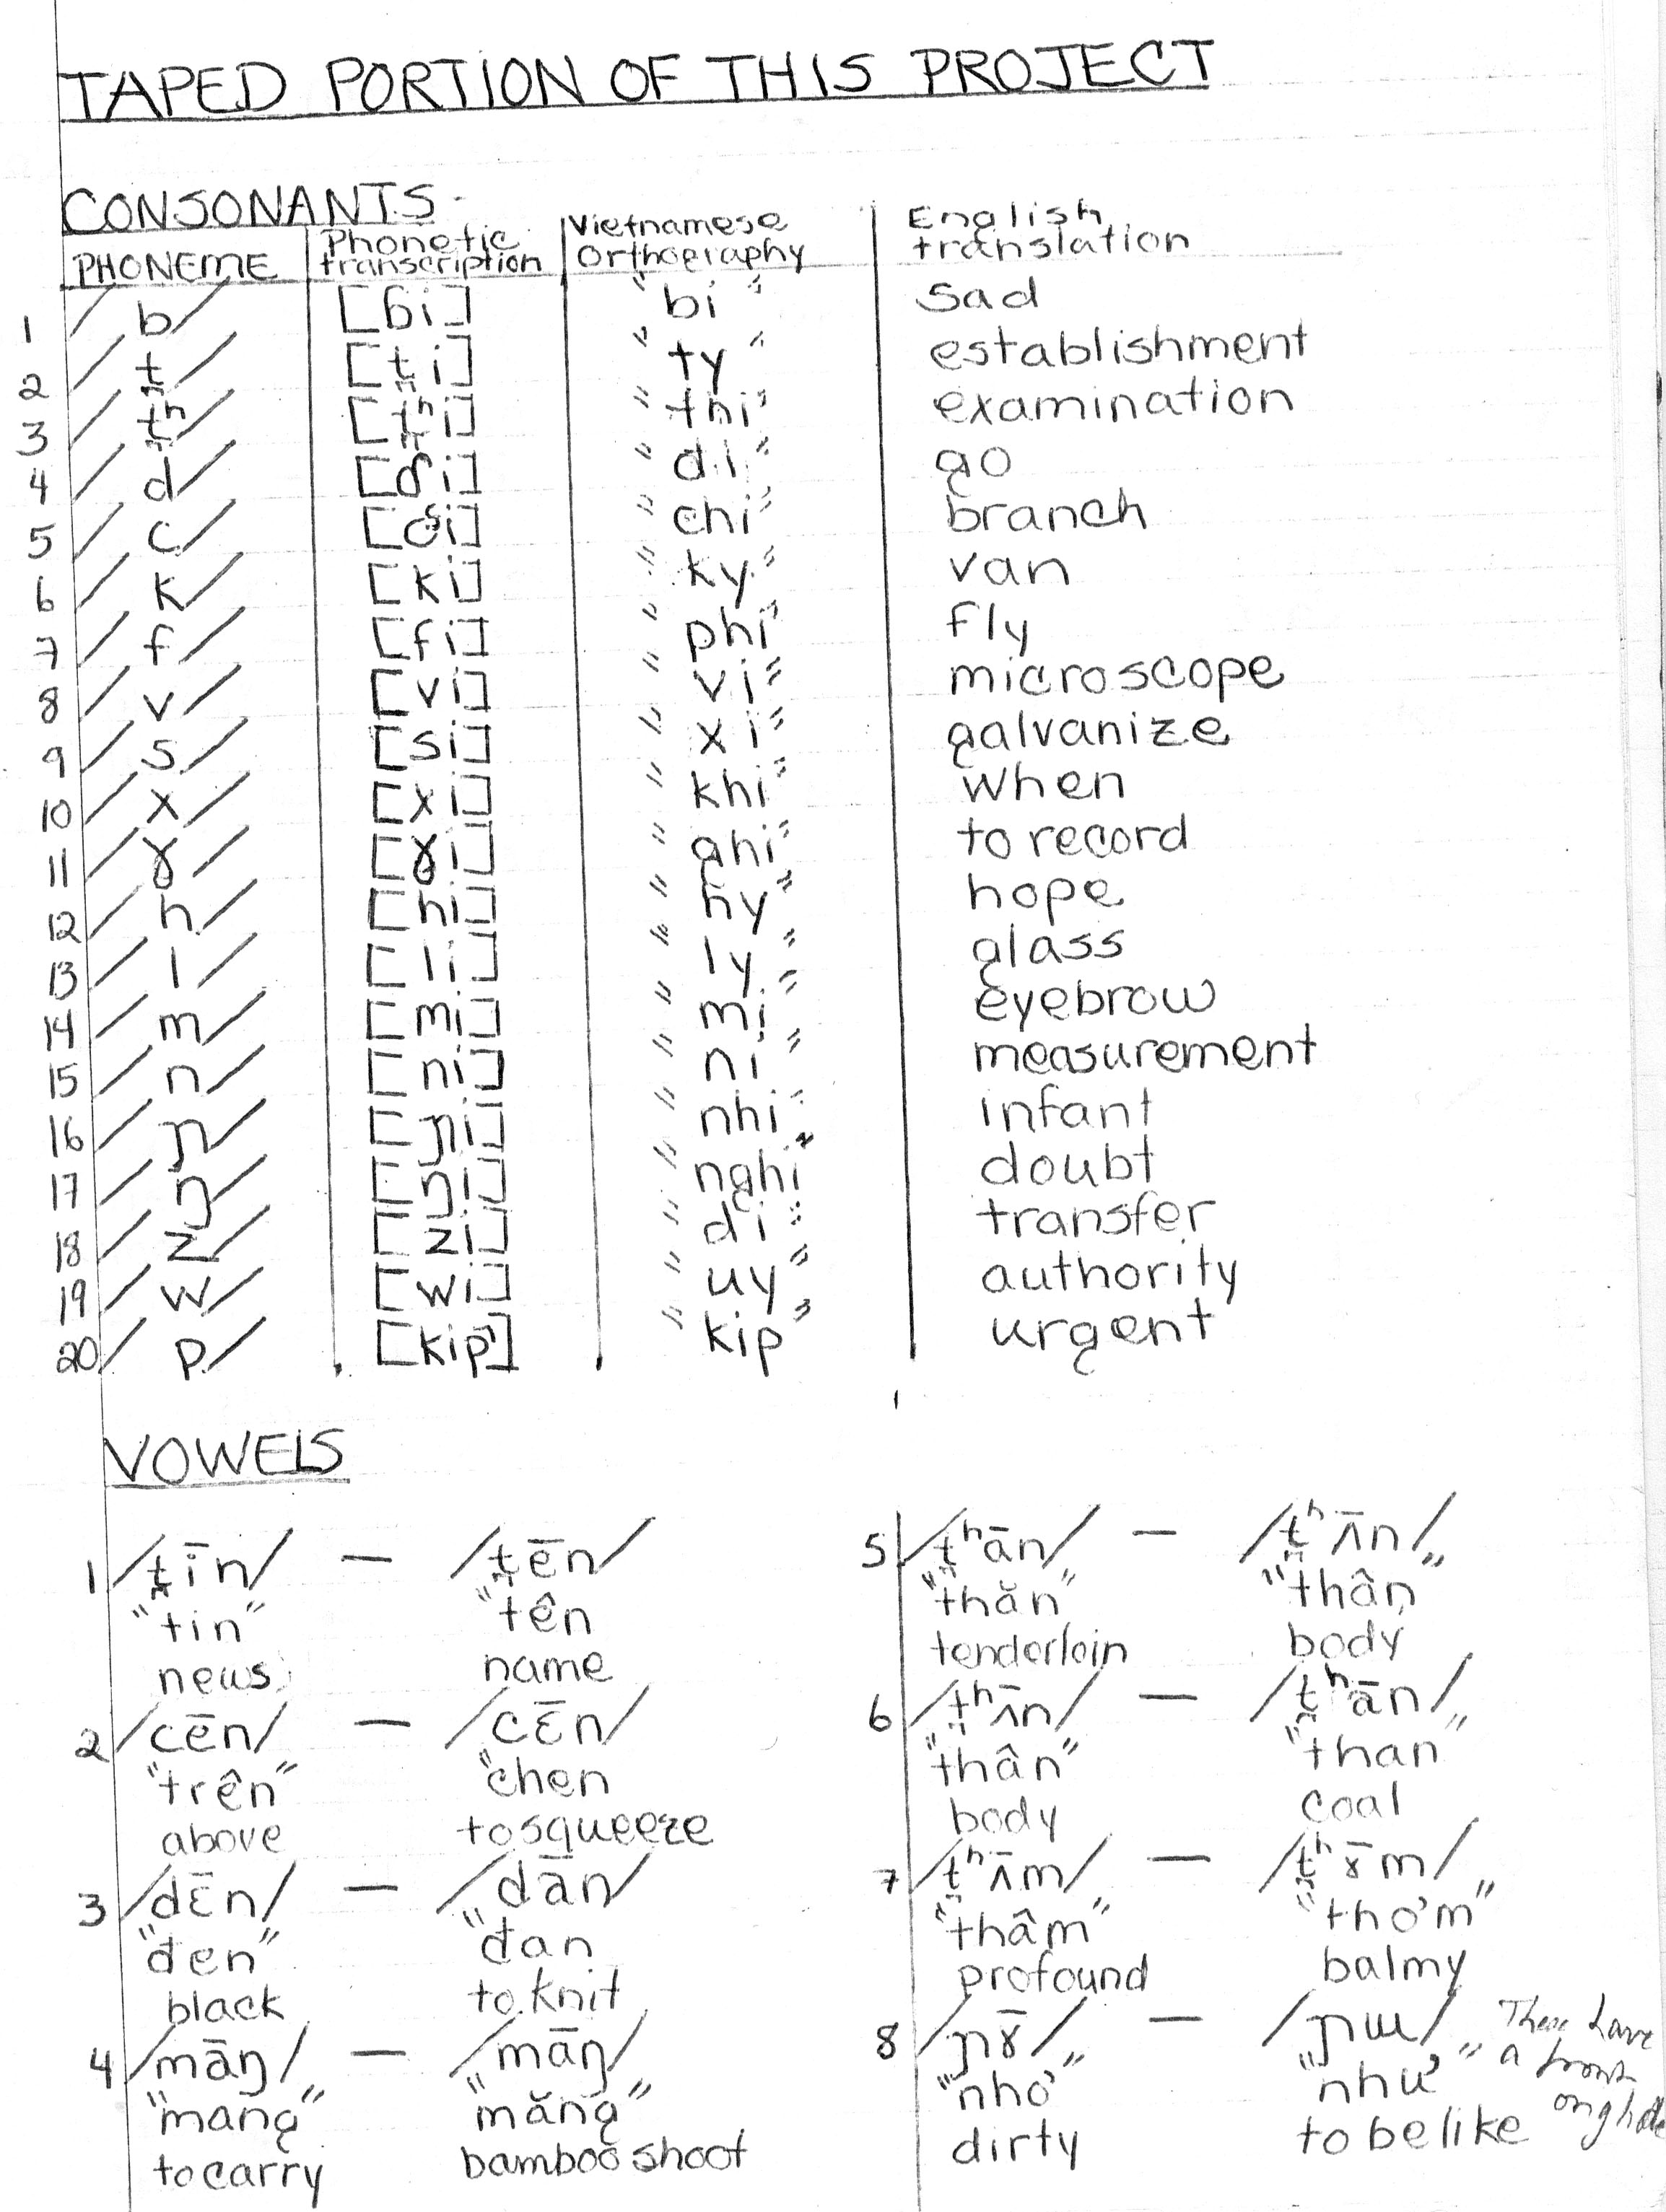 TAPED PORTION OF THIS PROJECT
CONSONANTS
PHONEME Phonetic transcription Vietnamese Orthography English translation
1 /b/ [ɓi] "bi" sad
2 /t̪/ [t̪i] "ty" establishment
3 /t̪ʰ/ [t̪ʰi] "thi" examination
4 /d/ [ɗi] "di" go
5 /c/ [cᶝi] "chi" branch
6 /k/ [ki] "ky" van
7 /f/ [fi] "phi" fly
8 /v/ [vi] "vi" microscope
9 /s/ [si] "xi" galvanize
10 /x/ [xi] "khi" when
11 /ɣ/ [ɣi] "ghi" to record
12 /h/ [hi] "hy" hope
13 /l/ [li] "ly" glass
14 /m/ [mi] "mi" eyebrow
15 /n/ [ni] "ni" measurement
16 /ɲ/ [ɲi] "nhi" infant
17 /ŋ/ [ŋi] "nghi" doubt
18 /z/ [zi] "di" transfer
19 /w/ [wi] "uy" authority
20 /p/ [kip̚] "kip" urgent
VOWELS
1 /t̪īn/ — /t̪ēn/
"tin" "tên
news name
2 /cēn/ — /cɛ̄n/
"trên" "chen
above to squeeze
3 /dɛ̄n/ — /dān/
"đen" "đan
black to knit
4 /māŋ/ — /māŋ/
"mang" "măng"
to carry bamboo shoot
5 /t̪ʰān/ — /t̪ʰʌ̄n/
"thăn" "thân"
tenderloin body
6 /t̪ʰʌ̄n/ — /t̪ʰān/
"thân" "than"
body coal
7 /t̪ʰʌ̄m/ — /t̪ʰɤ̄m/
"thâm" "thơm"
profound balmy
8 /ɲɤ̄/ — /ɲɯ/
"nhơ" "như"
dirty to be like
These have
a